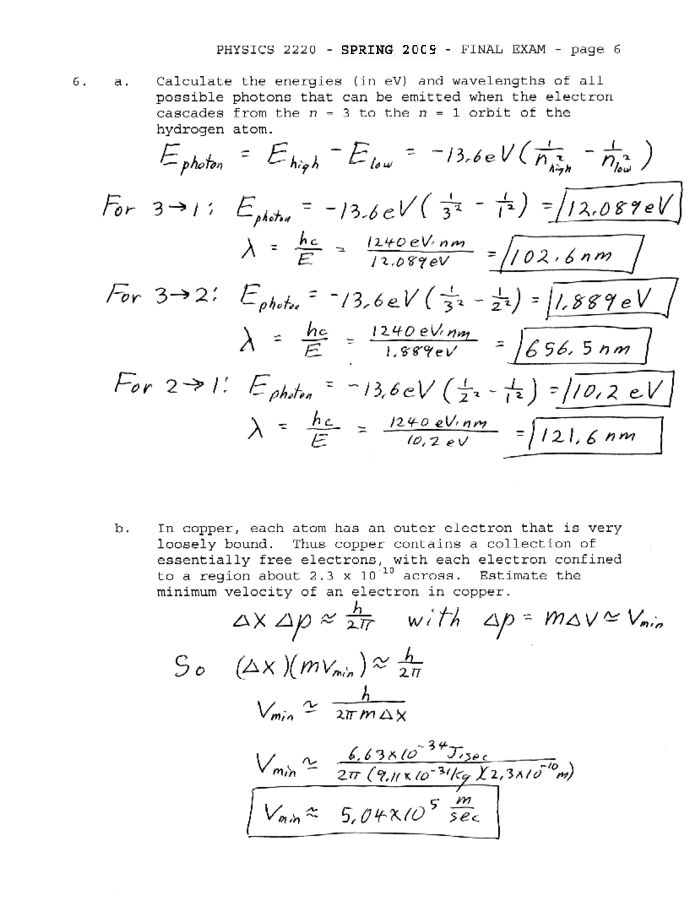 PHYSICS 2220 - SPRING 2009 - FINAL EXAM - page 6
6. a. Calculate the energies (in eV) and wavelengths of all
possible photons that can be emitted when the electron
cascades from the n = 3 to the n = 1 orbit of the
hydrogen atom.
E_photon = E_high - E_low = -13.6eV(1/n_high² - 1/n_low²)
For 3→1: E_photon = -13.6eV(1/3² - 1/1²) = 12.089eV
λ = hc/E = 1240eV·nm/12.089eV = 102.6nm
For 3→2: E_photon = -13.6eV(1/3² - 1/2²) = 1.889eV
λ = hc/E = 1240eV·nm/1.889eV = 656.5nm
For 2→1: E_photon = -13.6eV(1/2² - 1/1²) = 10.2 eV
λ = hc/E = 1240 eV·nm/10.2 eV = 121.6 nm
b. In copper, each atom has an outer electron that is very
loosely bound. Thus copper contains a collection of
essentially free electrons, with each electron confined
to a region about 2.3 x 10⁻¹⁰ across. Estimate the
minimum velocity of an electron in copper.
Δx Δp ≈ h/2π with Δp = mΔv ≃ V_min
So (Δx)(mV_min) ≈ h/2π
V_min ≃ h/2πmΔx
V_min ≃ 6.63×10⁻³⁴J·sec/2π(9.11×10⁻³¹kg)(2.3×10⁻¹⁰m)
V_min ≈ 5.04×10⁵ m/sec